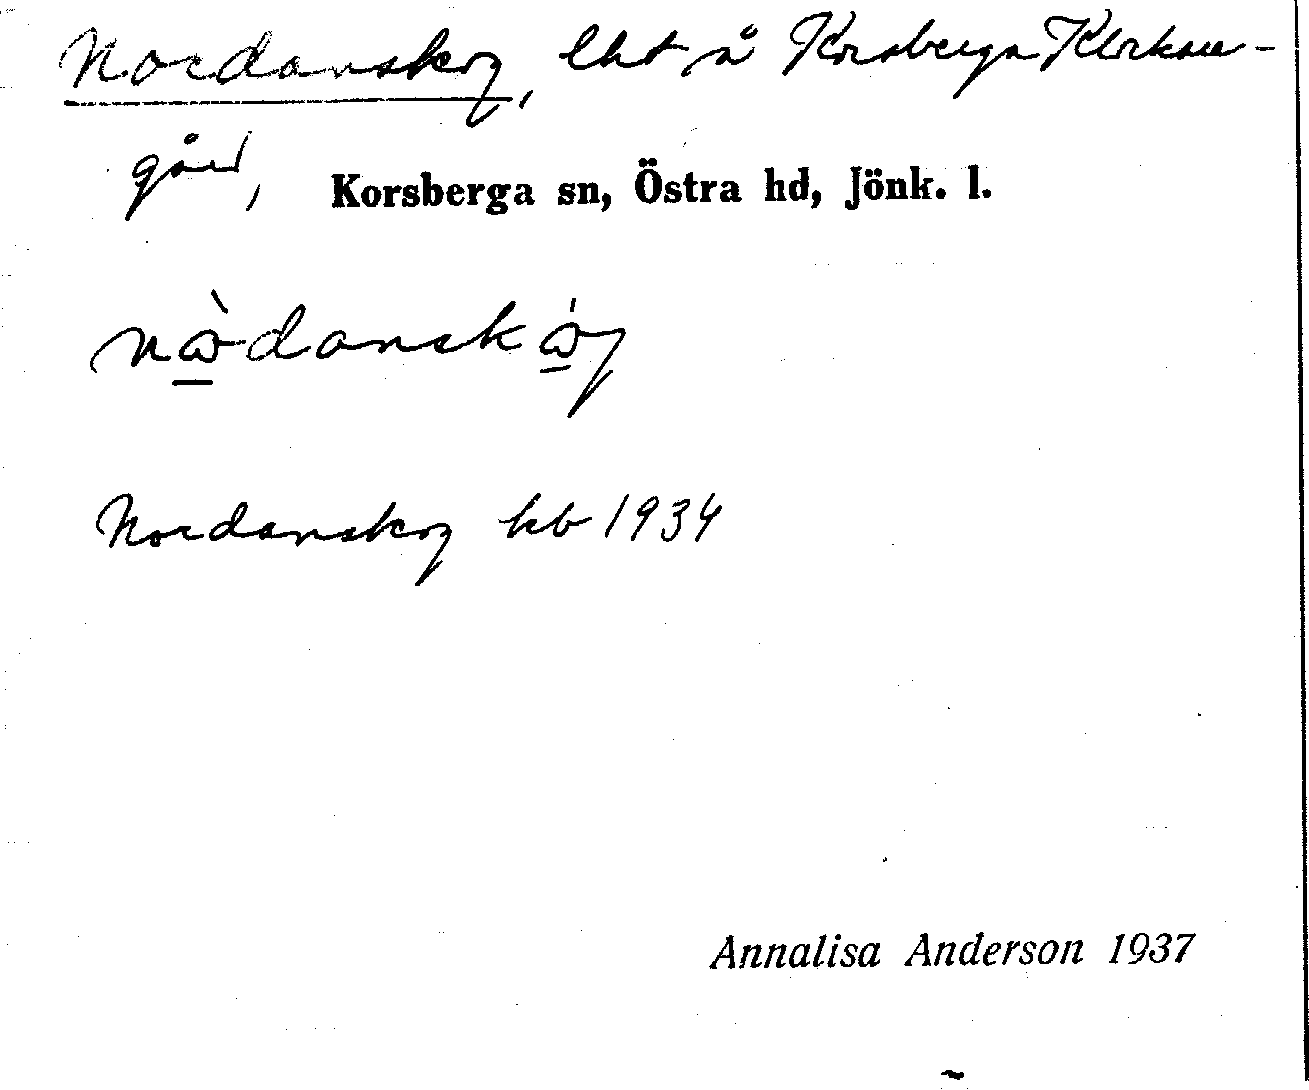 Nordanskog, lht å Korsberga Klockare-
gård,
Korsberga sn, Östra hd, Jönk. l.
Nordanskog kb 1934
Annalisa Anderson 1937